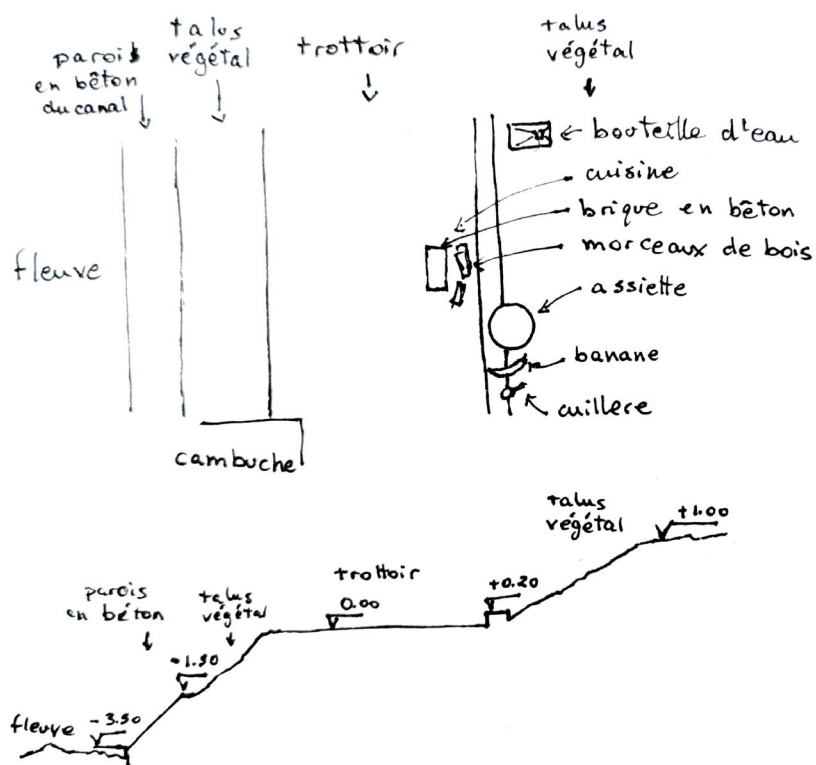 parois
en bêton
du canal
talus
végétal
trottoir
talus
végétal
bouteille d'eau
cuisine
brique en bêton
morceaux de bois
assiette
banane
cuillere
fleuve
cambuche
talus
végétal
+1.00
trottoir
0.00
+0.20
parois
en béton
talus
végétal
-1.50
fleuve
-3.50